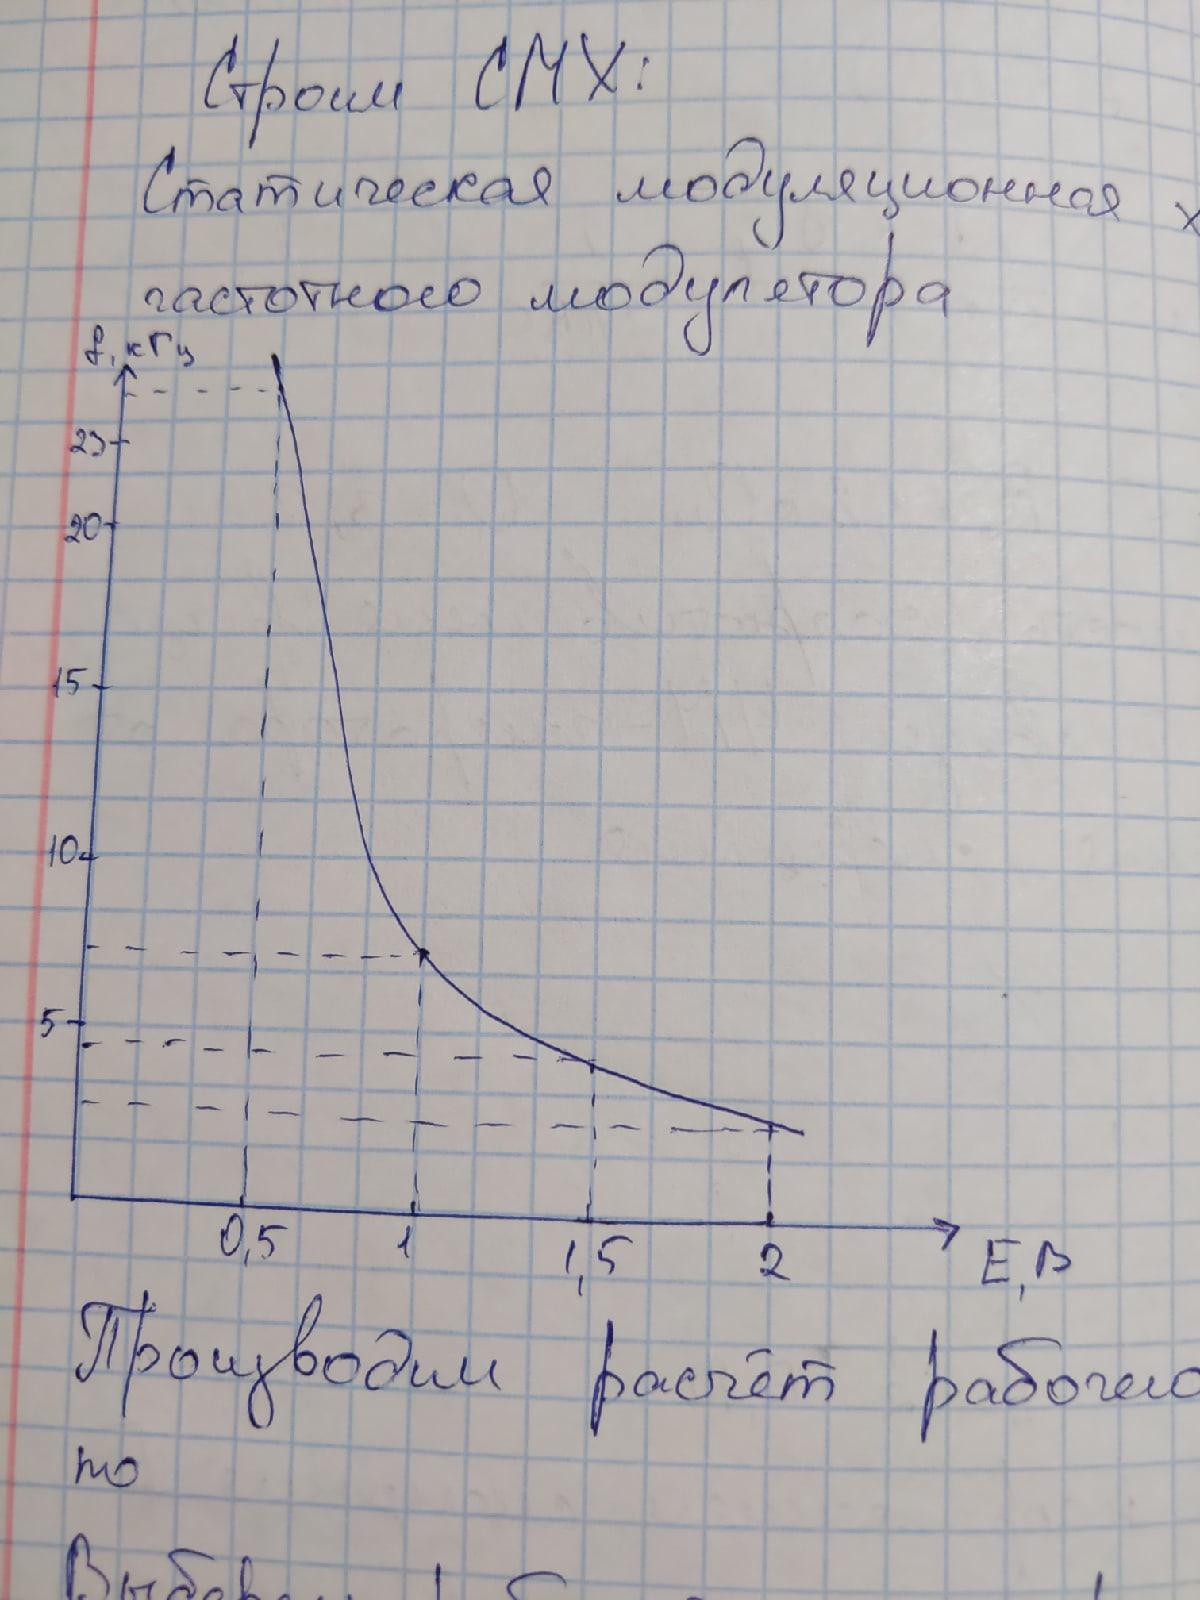 Строим СМХ:
Статическая модуляционная х
частотного модулятора
f, кГц
23
20
15
10
5
0,5 1 1,5 2 E, В
Производим расчёт рабочего
то
Выберем